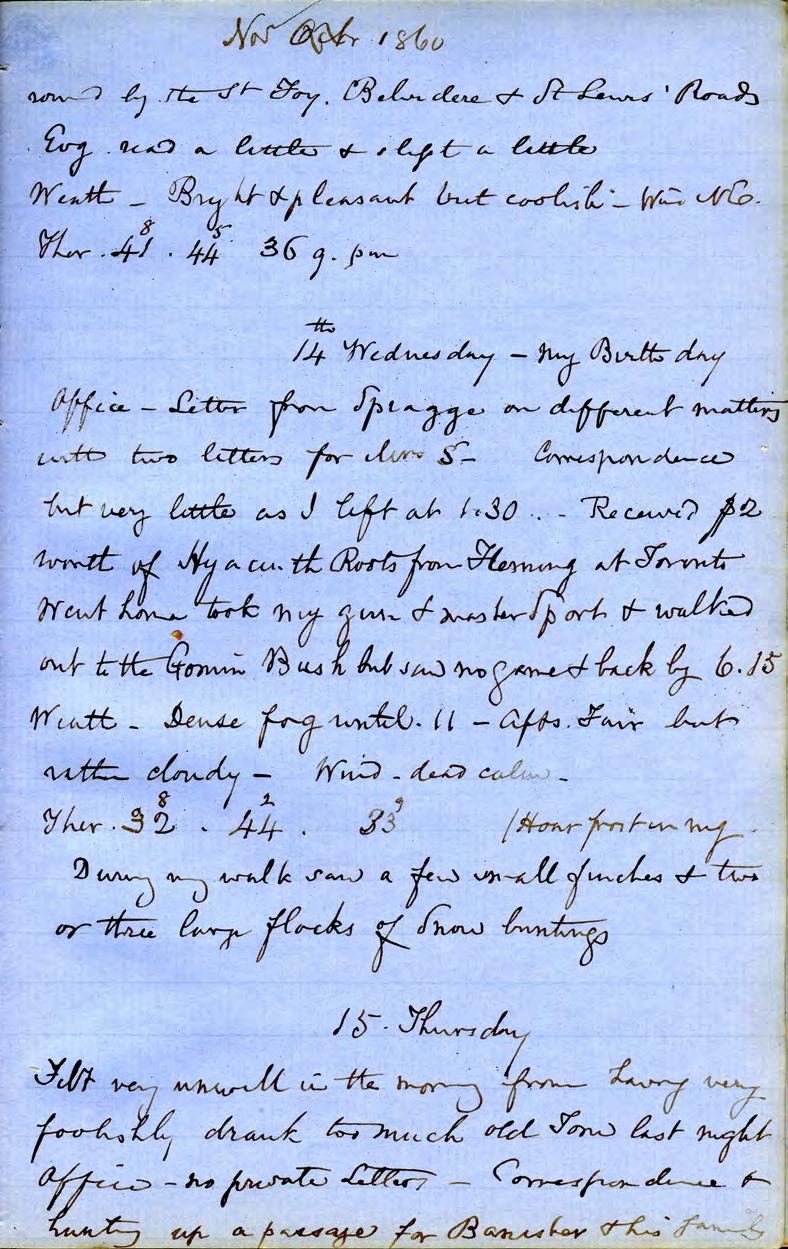 Nov Octr 1860
round by the St Foy, Belvidere & St Lewis' Roads
Evg read a little & slept a little
Weath - Bright & pleasant but coolish - Wind NE.
Ther. 41 8 . 44 5 36 9. pm
14th Wednesday - My Birth day
Office - Letter from Spragge on different matters
with two letters for Mrs S- Correspondence
but very little as I left at 1.30 .. - Received $2
worth of Hyacinth Roots from Fleming at Toronto
Went home took my gun & master Sport & walked
out to the Gomin Bush but saw no game & back by 6.15
Weath - Dense fog until 11 - Afts. Fair but
rather cloudy - Wind - dead calm -
Ther. 32 8 . 44 2 . 33 9 / Hoar frost in mg.
During my walk saw a few small finches & two
or three large flocks of Snow buntings
15. Thursday
Felt very unwell in the morning from having very
foolishly drank too much old Tom last night
Office - no private Letters - Correspondence &
hunting up a passage for Banister & his family